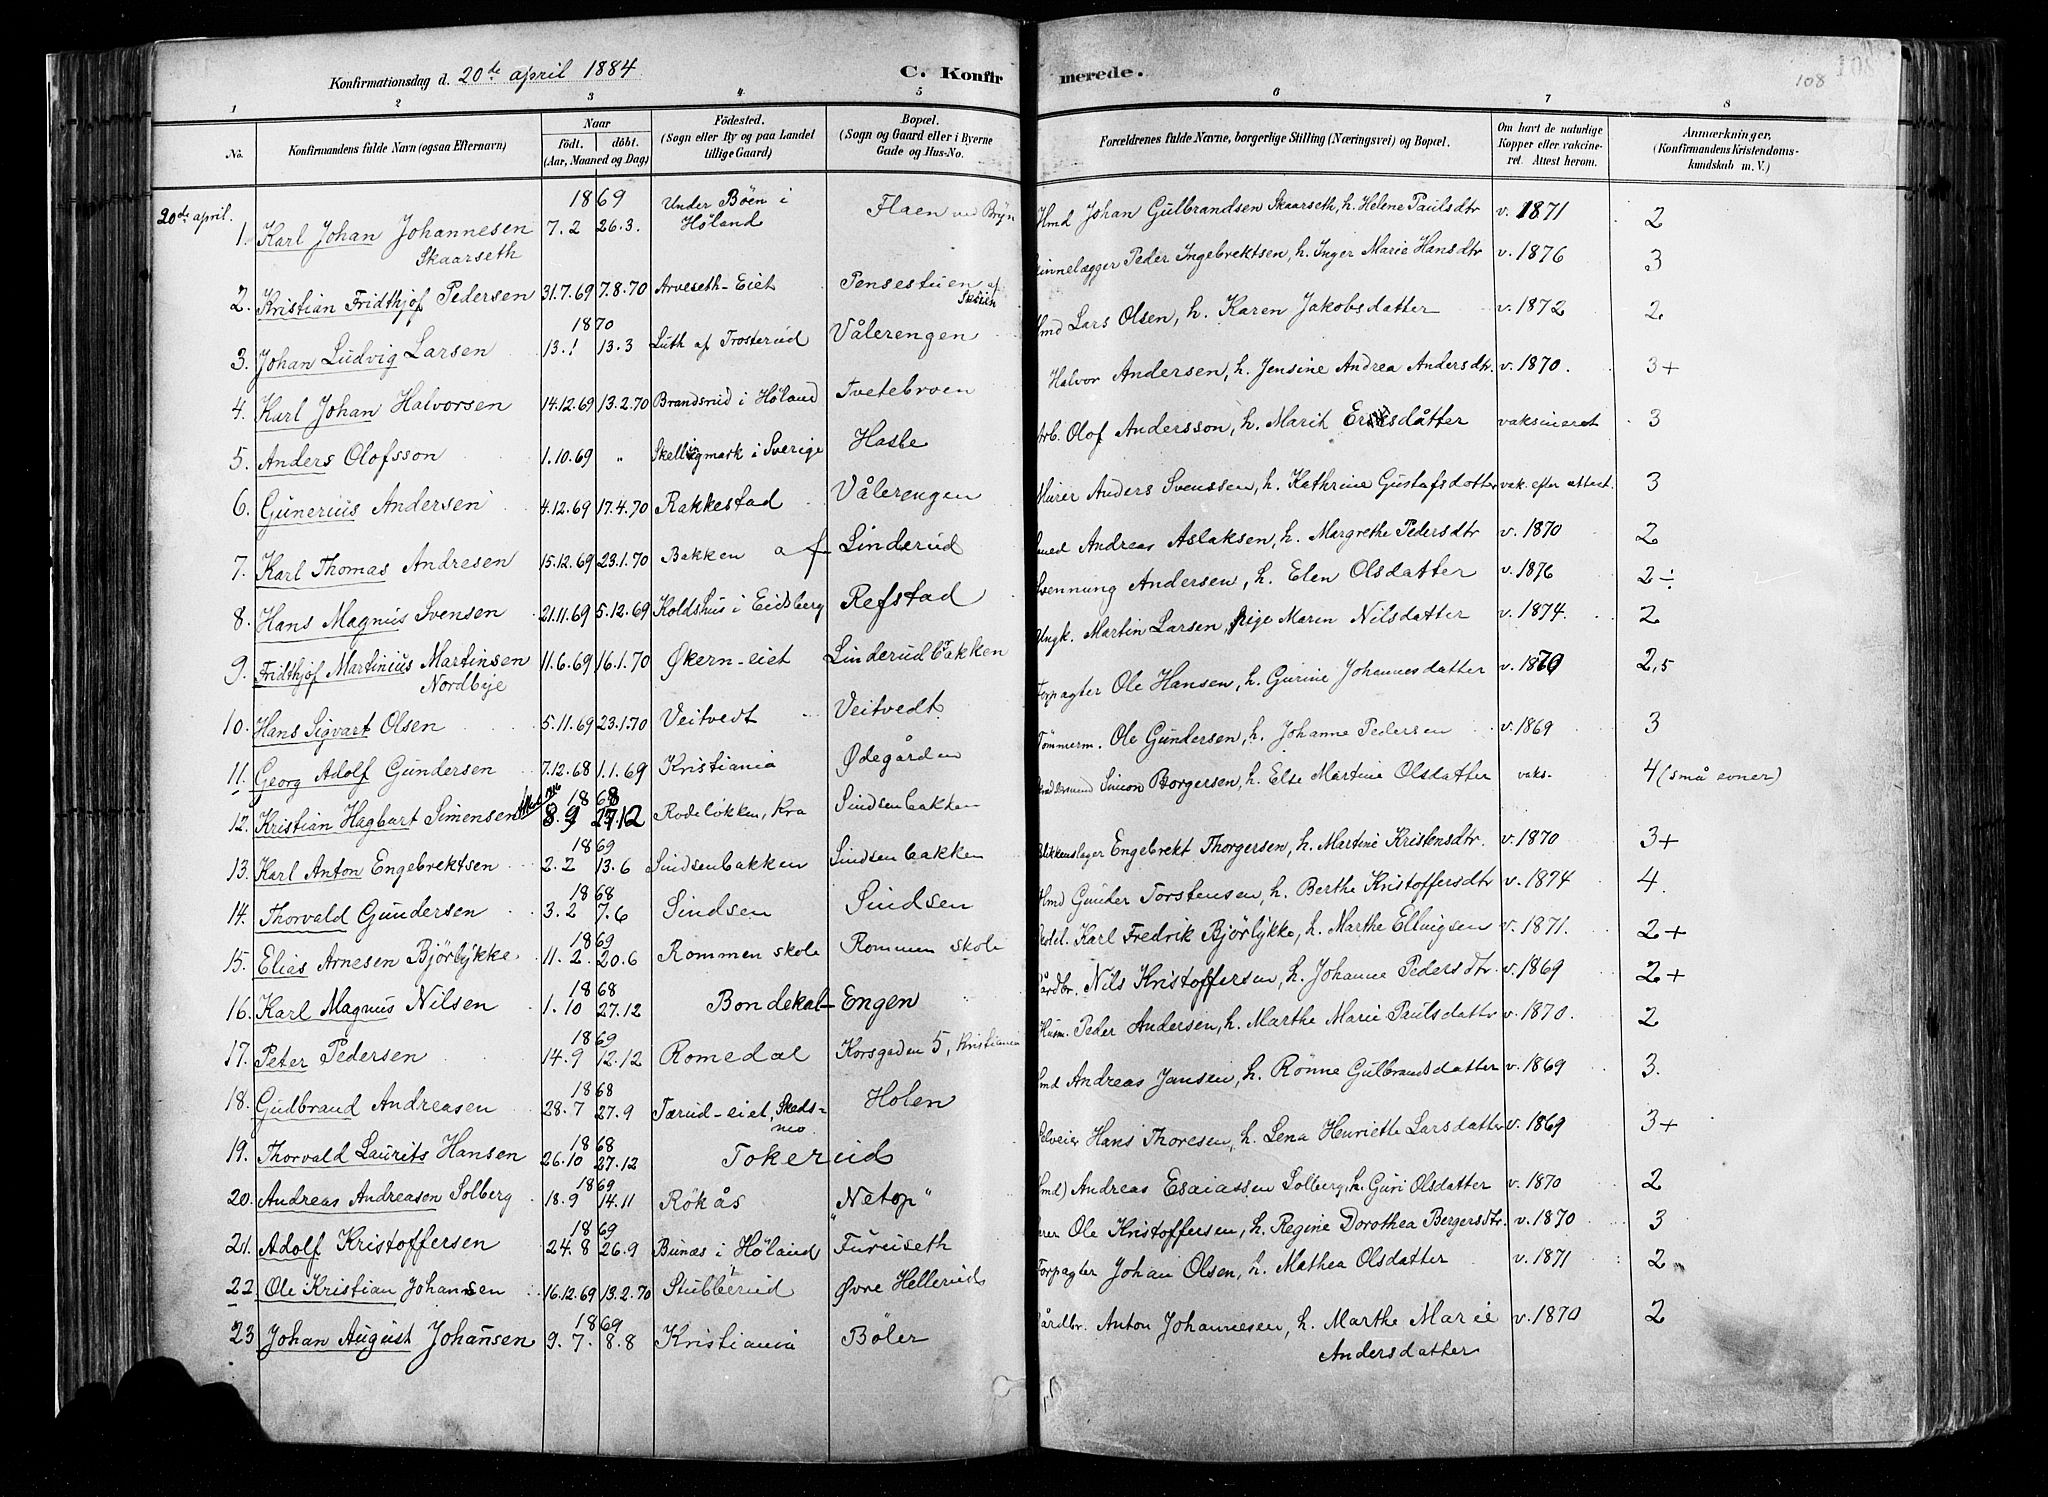 Konfirmationsdag d. 20de april 1884 C. Konfirmerede.
108
1 2 3 4 5 6 7 8
No. Konfirmandens fulde Navn (ogsaa Efternavn) Naar født. døbt. (Aar, Maaned og Dag) Fødested. (Sogn eller By og paa Landet tillige Gaard) Bopæl. (Sogn og Gaard eller i Byerne Gade og Hus-No. Forældrenes fulde Navne, borgerlige Stilling (Næringsvei) og Bopæl. Om havt de naturlige Kopper eller vakcineret. Attest herom. Anmærkninger, (Konfirmandens Kristendomskundskab m. V.)
20de april.
1869
1. Karl Johan Johannesen Skaarseth 7.2 26.3. Under Böen i Høland Flaen ved Bryn Hmd Johan Gulbrandsen Skaarseth, h. Helene Paulsdtr v. 1871 2
2. Kristian Fridthjof Pedersen 31.7.69 7.8.70 Arveseth-Eiet Pensestuen af Skøien Peder Ingebrektsen, h. Inger Marie Hansdtr v. 1876 3
1870
3. Johan Ludvig Larsen 13.1 13.3 Luth af Trosterud Vålerengen Hmd Lars Olsen, h. Karen Jakobsdatter v. 1872 2
4. Karl Johan Halvorsen 14.12.69 13.2.70 Brandsrud i Høland Tvetebroen Halvor Andersen, h. Jensine Andrea Andersdtr. v. 1870. 3+
5. Anders Olofsson 1.10.69 " i Sverige Hasle Arb. Olof Andersson, h. Marit Ersdåtter vaksineret 3
6. Gunerius Andersen 4.12.69 17.4.70 Rakkestad Vålerengen Murer Anders Svenssen, h. Kathrine Gustafsdatter vak. efter attest. 3
7. Karl Thomas Andresen 15.12.69 23.1.70 Bakken af Linderud Smed Andreas Aslaksen, h. Margrethe Pedersdtr v. 1870 2
8. Hans Magnus Svensen 21.11.69 5.12.69 Koldshus i Eidsberg Refstad Svenning Andersen, h. Elen Olsdatter v. 1876 2÷
9. Fridthjof Martinius Martinsen Nordbye 11.6.69 16.1.70 Økern-eiet Linderudbakken Ungk. Martin Larsen, Pige Maren Nilsdatter v. 1874. 2
10. Hans Sigvart Olsen 5.11.69 23.1.70 Veitvedt Veitvedt Forpagter Ole Hansen, h. Gurine Johannesdatter v. 1870 2,5
11. Georg Adolf Gundersen 7.12.68 1.1.69 Kristiania Ødegården Tömmerm. Ole Gundersen, h. Johanne Pedersen v. 1869 3
1868
12. Kristian Hagbart Simensen 8.9 27.12 Rodeløkken, Kra Sindsenbakken Simon Borgersen, h. Else Martine Olsdatter vaks. 4 (små evner)
1869
13. Karl Anton Engebrektsen 2.2 13.6 Sindsenbakken Sindsenbakken Blikkenslager Engebrekt Thorgersen, h. Martine Kristensdtr. v. 1870 3+
1868
14. Thorvald Gundersen 3.2 7.6 Sindsen Sindsen Hmd Gunder Torstensen, h. Berthe Kristoffersdtr v. 1874 4.
1869
15. Elias Arnesen Björlykke 11.2. 20.6 Rommen skole Rommen skole Skolel. Karl Fredrik Björlykke, h. Marthe Ellingsen v. 1871. 2+
1868
16. Karl Magnus Nilsen 1.10 27.12 Bondekal-Engen Gårdbr. Nils Kristoffersen, h. Johanne Pedersdtr. v. 1869 2+
1869
17. Peter Pedersen 14.9 12.12 Romedal Korsgaden 5, Kristiania Husm. Peder Andersen, h. Marthe Marie Paulsdatter v. 1870. 2
1868
18. Gulbrand Andreasen 28.7 27.9 Tærud-eiet, Skedsmo Holen Hmd Andreas Jansen, h. Rønne Gulbrandsdatter v. 1869 3.
1868
19. Thorvald Laurits Hansen 26.10 27.12 Tokerud Selveier Hans Thoresen, h. Lena Henriette Larsdatter v. 1869 3+
1869
20. Andreas Andreasen Solberg 18.9 14.11 Rökås "Netop" Hmd) Andreas Esaiassen Solberg, h. Guri Olsdatter v. 1870 2
1869
21. Adolf Kristoffersen 24.8 26.9 Bunæs i Høland Furuseth Ole Kristoffersen, h. Regine Dorothea Bergersdtr. v. 1870 3
22. Ole Kristian Johansen 16.12.69 13.2.70 Stubberud Øvre Hellerud Forpagter Johan Olsen, h. Mathea Olsdatter v. 1871 2
1869
23 Johan August Johansen 9.7. 8.8 Kristiania Böler Gårdbr. Anton Johannesen, h. Marthe Marie Andersdatter v. 1870 2